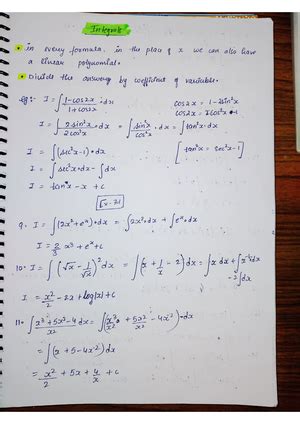 Integrals
• in every formula, in the place of x we can also have
a linear polynomial.
• Divide the answer by coefficient of variable.
eg: I = ∫ 1-cos2x / 1+cos2x · dx
cos2x = 1-2sin²x
cos2x = 2cos²x-1
I = ∫ 2sin²x / 2cos²x · dx = ∫ sin²x / cos²x dx = ∫ tan²x · dx
I = ∫ (sec²x-1) · dx
[tan²x = sec²x-1]
I = ∫ sec²x · dx - ∫ dx
I = tan x - x + c
9. I = ∫ (2x²+eˣ) · dx = ∫ 2x² · dx + ∫ eˣ · dx
I = 2/3 x³ + eˣ + c
10. I = ∫ (√x - 1/√x)² dx = ∫ (x + 1/x - 2) dx = ∫ x dx + ∫ x⁻¹ dx
-2 ∫ dx
I = x²/2 - 2x + log|x| + c
11. ∫ x³+5x²-4 / x² dx = ∫ (x³/x² + 5x²/x² - 4x⁻²) · dx
= ∫ (x + 5 - 4x⁻²) dx
= x²/2 + 5x + 4/x + c